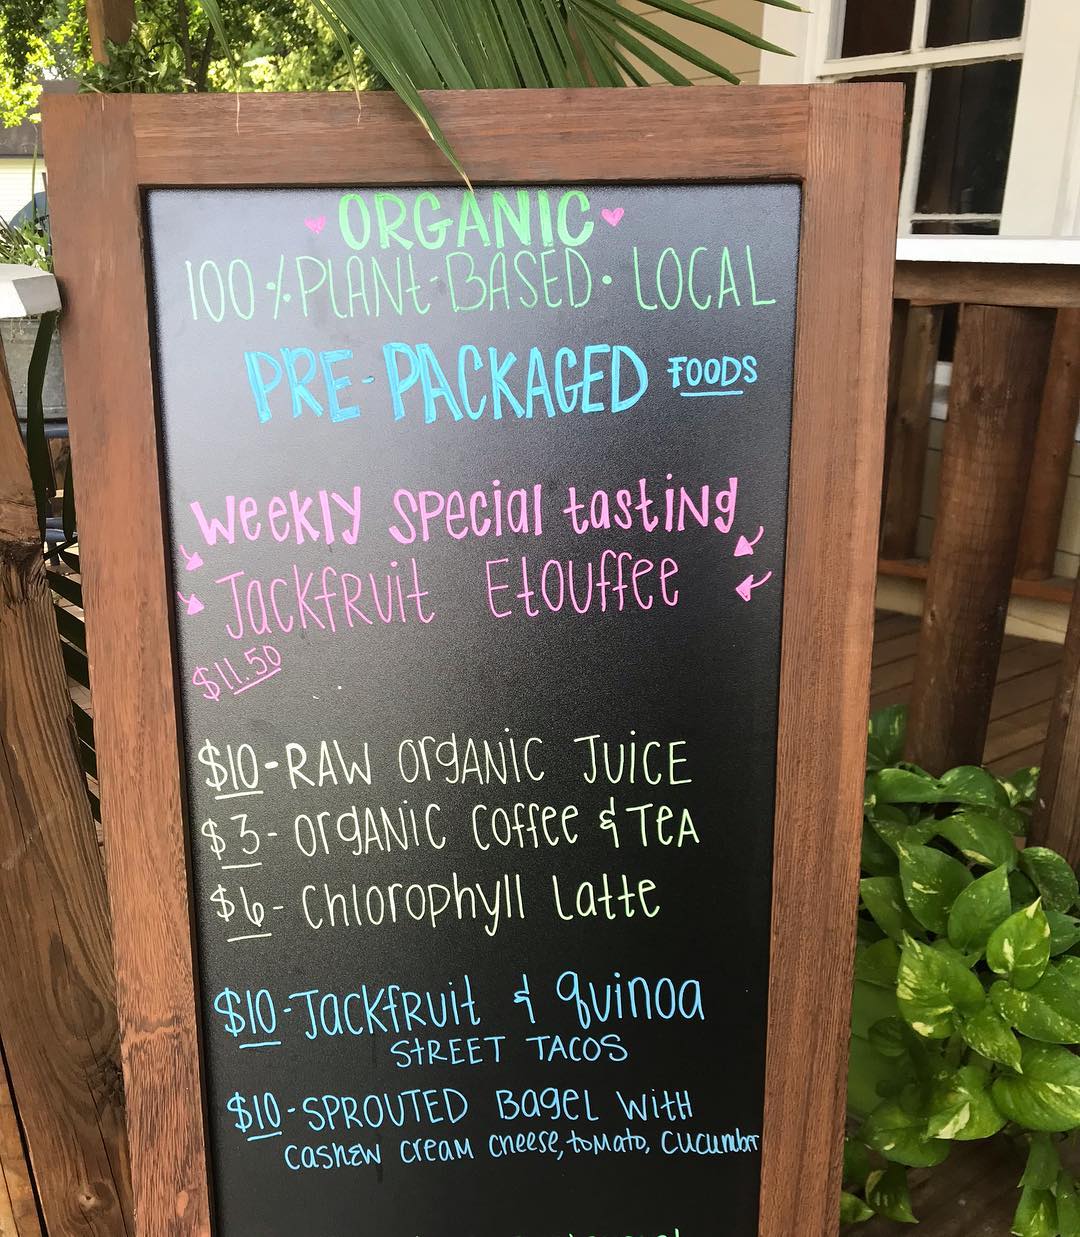 ORGANIC
100% PLANT-BASED • LOCAL
PRE-PACKAGED FOODS
Weekly special tasting
Jackfruit Etouffee
$11.50
$10-RAW organic JUICE
$3-organic coffee & TEA
$6-Chlorophyll Latte
$10-Jackfruit & quinoa
STREET TACOS
$10-SPROUTED Bagel with
cashew cream cheese, tomato, cucumber